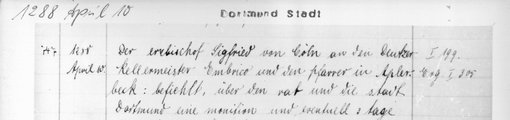 1288 April 10 Dortmund Stadt
1288 Der erzbischof Sigfried von Cöln an den Deutzer I 199.
April 10. Kellermeister Embrico und den pfarrer in Apler- Erg I 305
beck: befiehlt, über den rat und die stadt
Dortmund eine monition und eventuell 3 tage